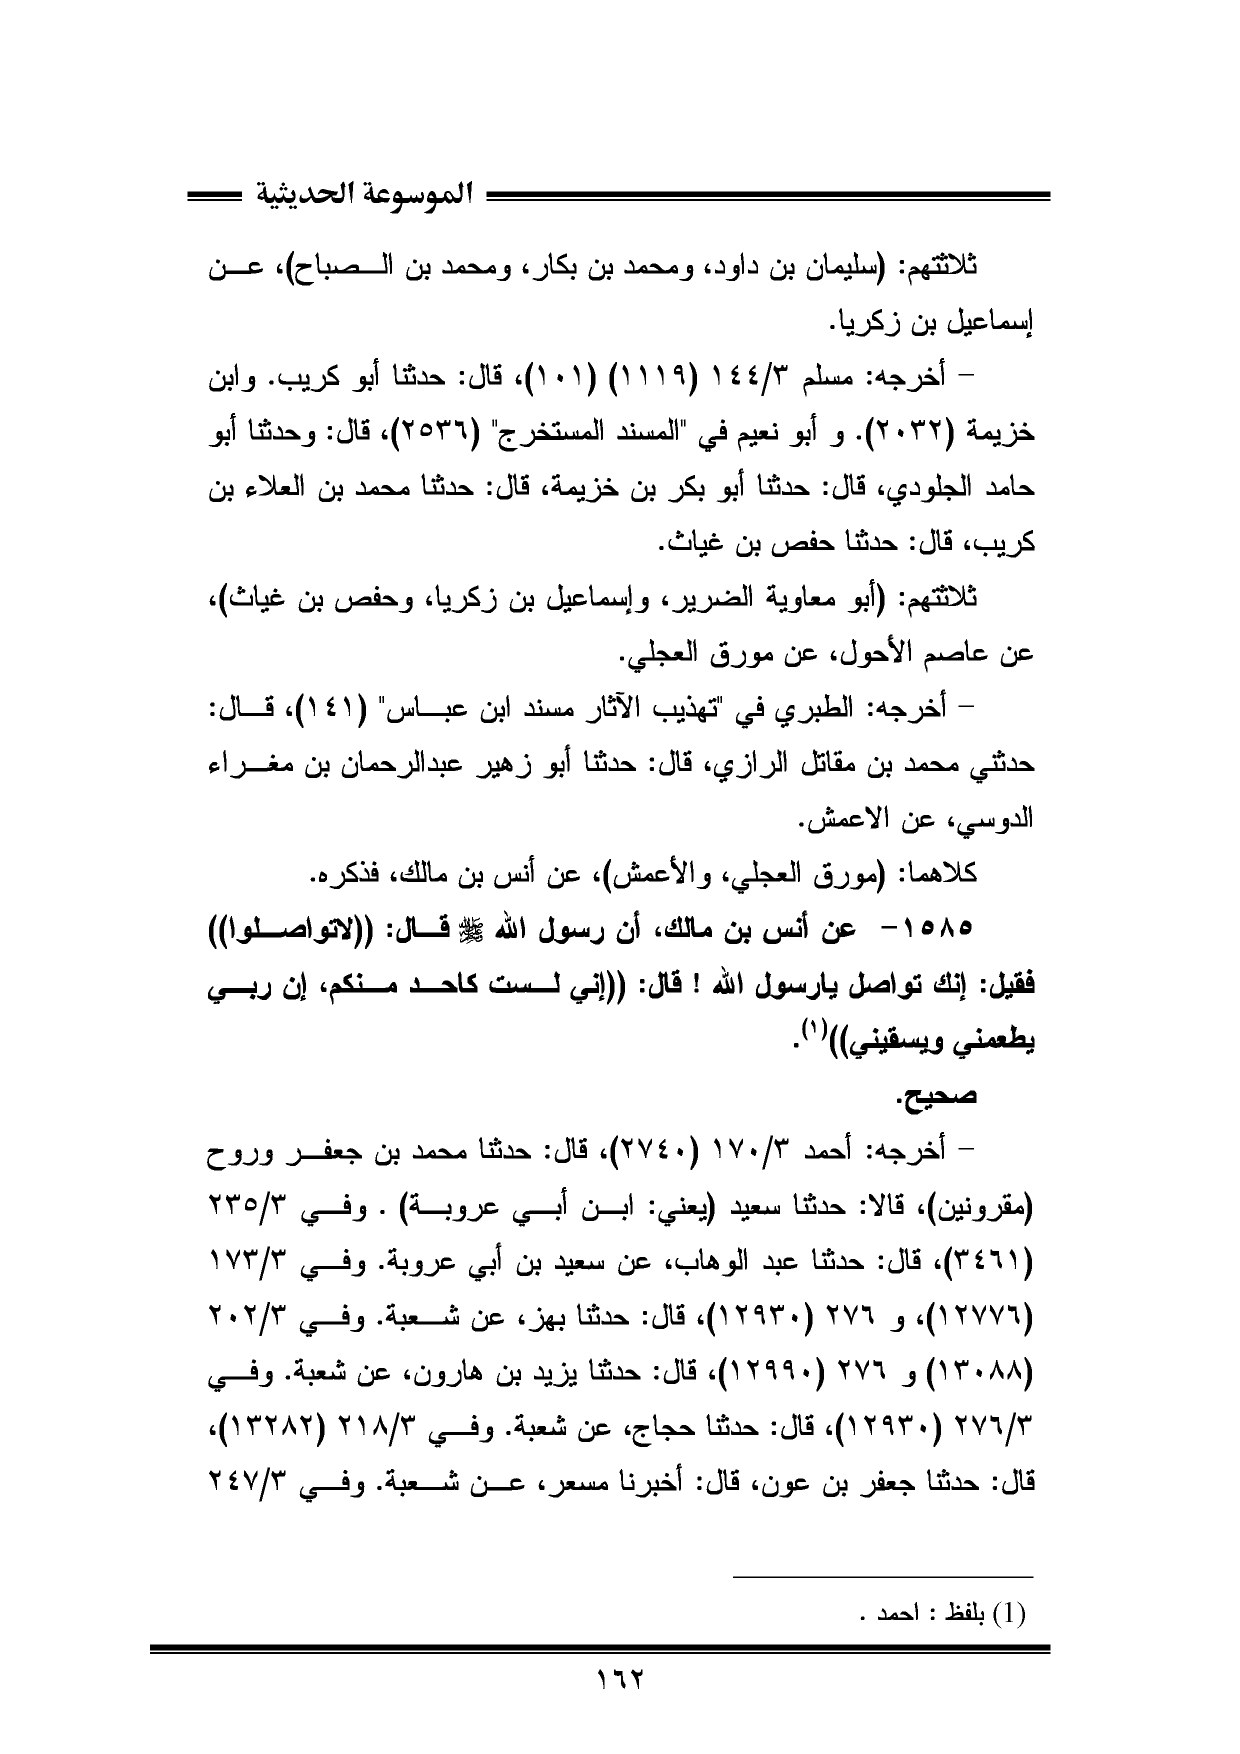 الموسوعة الحديثية
ثلاثتهم: (سليمان بن داود، ومحمد بن بكار، ومحمد بن الصباح)، عن
إسماعيل بن زكريا.
– أخرجه: مسلم ٣/١٤٤ (١١١٩) (١٠١)، قال: حدثنا أبو كريب. وابن
خزيمة (٢٠٣٢). و أبو نعيم في "المسند المستخرج" (٢٥٣٦)، قال: وحدثنا أبو
حامد الجلودي، قال: حدثنا أبو بكر بن خزيمة، قال: حدثنا محمد بن العلاء بن
كريب، قال: حدثنا حفص بن غياث.
ثلاثتهم: (أبو معاوية الضرير، وإسماعيل بن زكريا، وحفص بن غياث)،
عن عاصم الأحول، عن مورق العجلي.
– أخرجه: الطبري في "تهذيب الآثار مسند ابن عباس" (١٤١)، قال:
حدثني محمد بن مقاتل الرازي، قال: حدثنا أبو زهير عبدالرحمان بن مغراء
الدوسي، عن الاعمش.
كلاهما: (مورق العجلي، والأعمش)، عن أنس بن مالك، فذكره.
١٥٨٥– عن أنس بن مالك، أن رسول الله ﷺ قال: ((لاتواصلوا))
فقيل: إنك تواصل يارسول الله ! قال: ((إني لست كاحد منكم، إن ربي
يطعمني ويسقيني))(١).
صحيح.
– أخرجه: أحمد ٣/١٧٠ (٢٧٤٠)، قال: حدثنا محمد بن جعفر وروح
(مقرونين)، قالا: حدثنا سعيد (يعني: ابن أبي عروبة) . وفي ٣/٢٣٥
(٣٤٦١)، قال: حدثنا عبد الوهاب، عن سعيد بن أبي عروبة. وفي ٣/١٧٣
(١٢٧٧٦)، و ٢٧٦ (١٢٩٣٠)، قال: حدثنا بهز، عن شعبة. وفي ٣/٢٠٢
(١٣٠٨٨) و ٢٧٦ (١٢٩٩٠)، قال: حدثنا يزيد بن هارون، عن شعبة. وفي
٣/٢٧٦ (١٢٩٣٠)، قال: حدثنا حجاج، عن شعبة. وفي ٣/٢١٨ (١٣٢٨٢)،
قال: حدثنا جعفر بن عون، قال: أخبرنا مسعر، عن شعبة. وفي ٣/٢٤٧
(1) بلفظ : احمد .
١٦٢